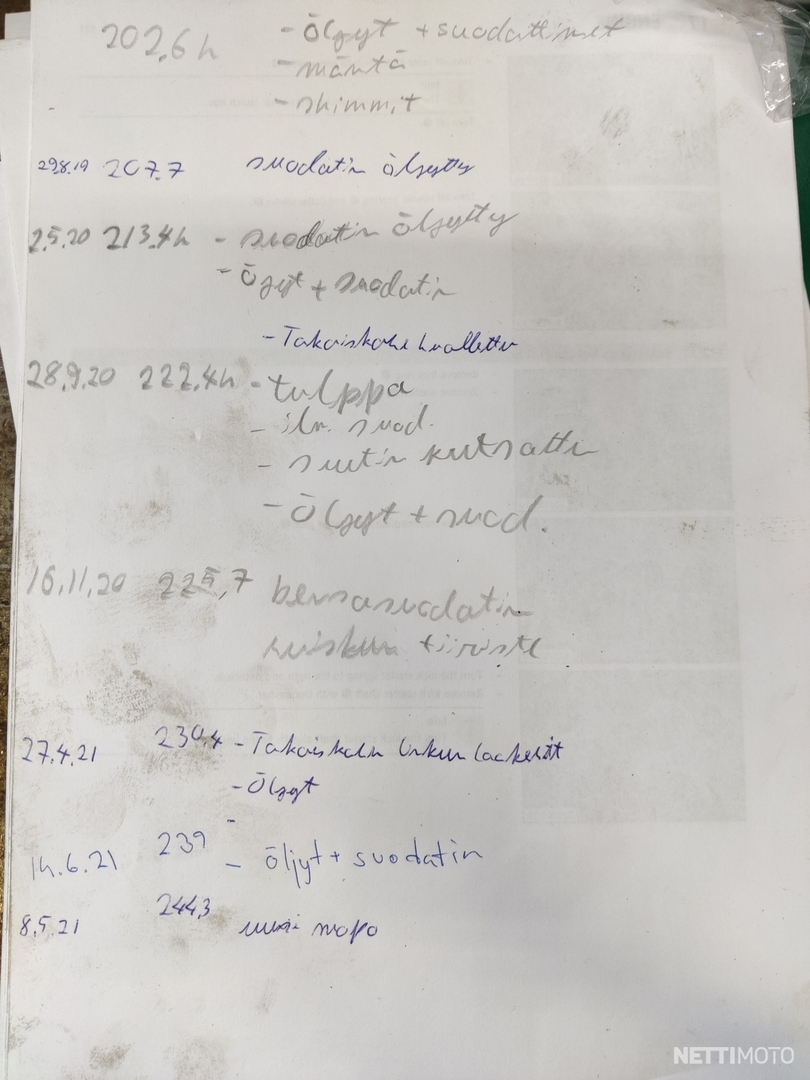 202,6h - Öljyt + suodattimet
- mäntä
- shimmit
29.8.19 207.7 suodatin öljytty
2.5.20 213.4h - suodatin öljytty
- Öjyt + suodatin
- Takaiskari huollettu
28.9.20 222.4h - tulppa
- ilm. suod.
- suutin
- Öljyt + suod.
16.11.20 225,7 bensasuodatin
tiiviste
27.4.21 230,4 - Takaiskarin laakerit
- Öljyt
-
14.6.21 239 - öljyt + suodatin
8.5.21 244,3 uusi
NETTIMOTO